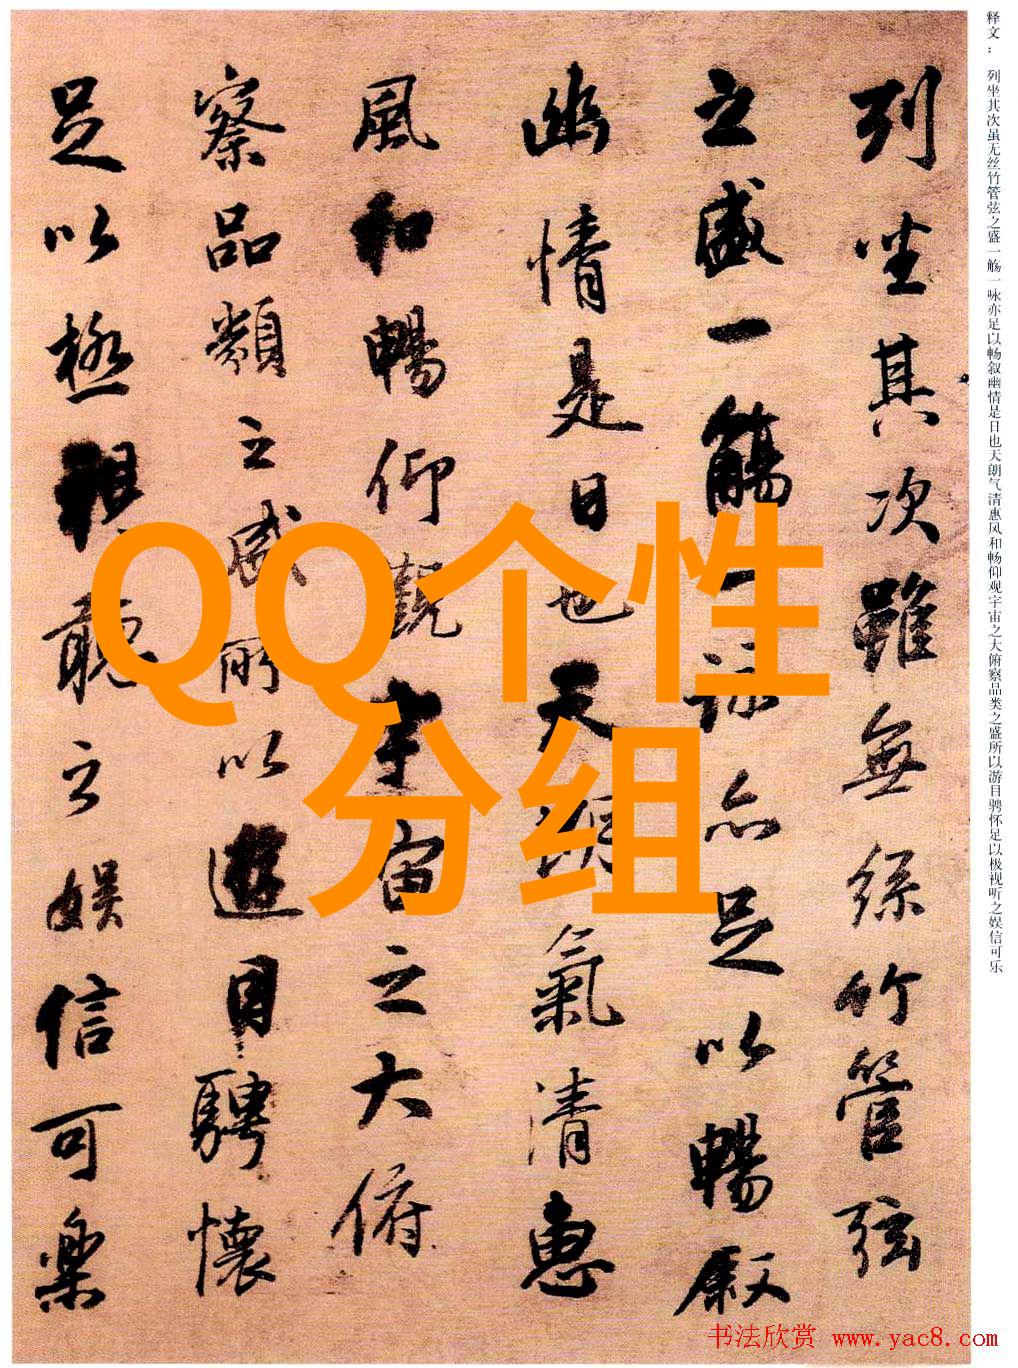 释文： 列坐其次虽无丝竹管弦之盛一觞一咏亦足以畅叙幽情是日也天朗气清惠风和畅仰观宇宙之大俯察品类之盛所以游目骋怀足以极视听之娱信可乐
列坐其次雖無絲竹管弦
之盛一觴一詠亦足以暢叙
幽情是日也天朗氣清惠
風和暢仰觀宇宙之大俯
察品類之盛所以遊目騁懷
足以極視聽之娛信可樂
QQ个性
分组
书法欣赏 www.yac8.com